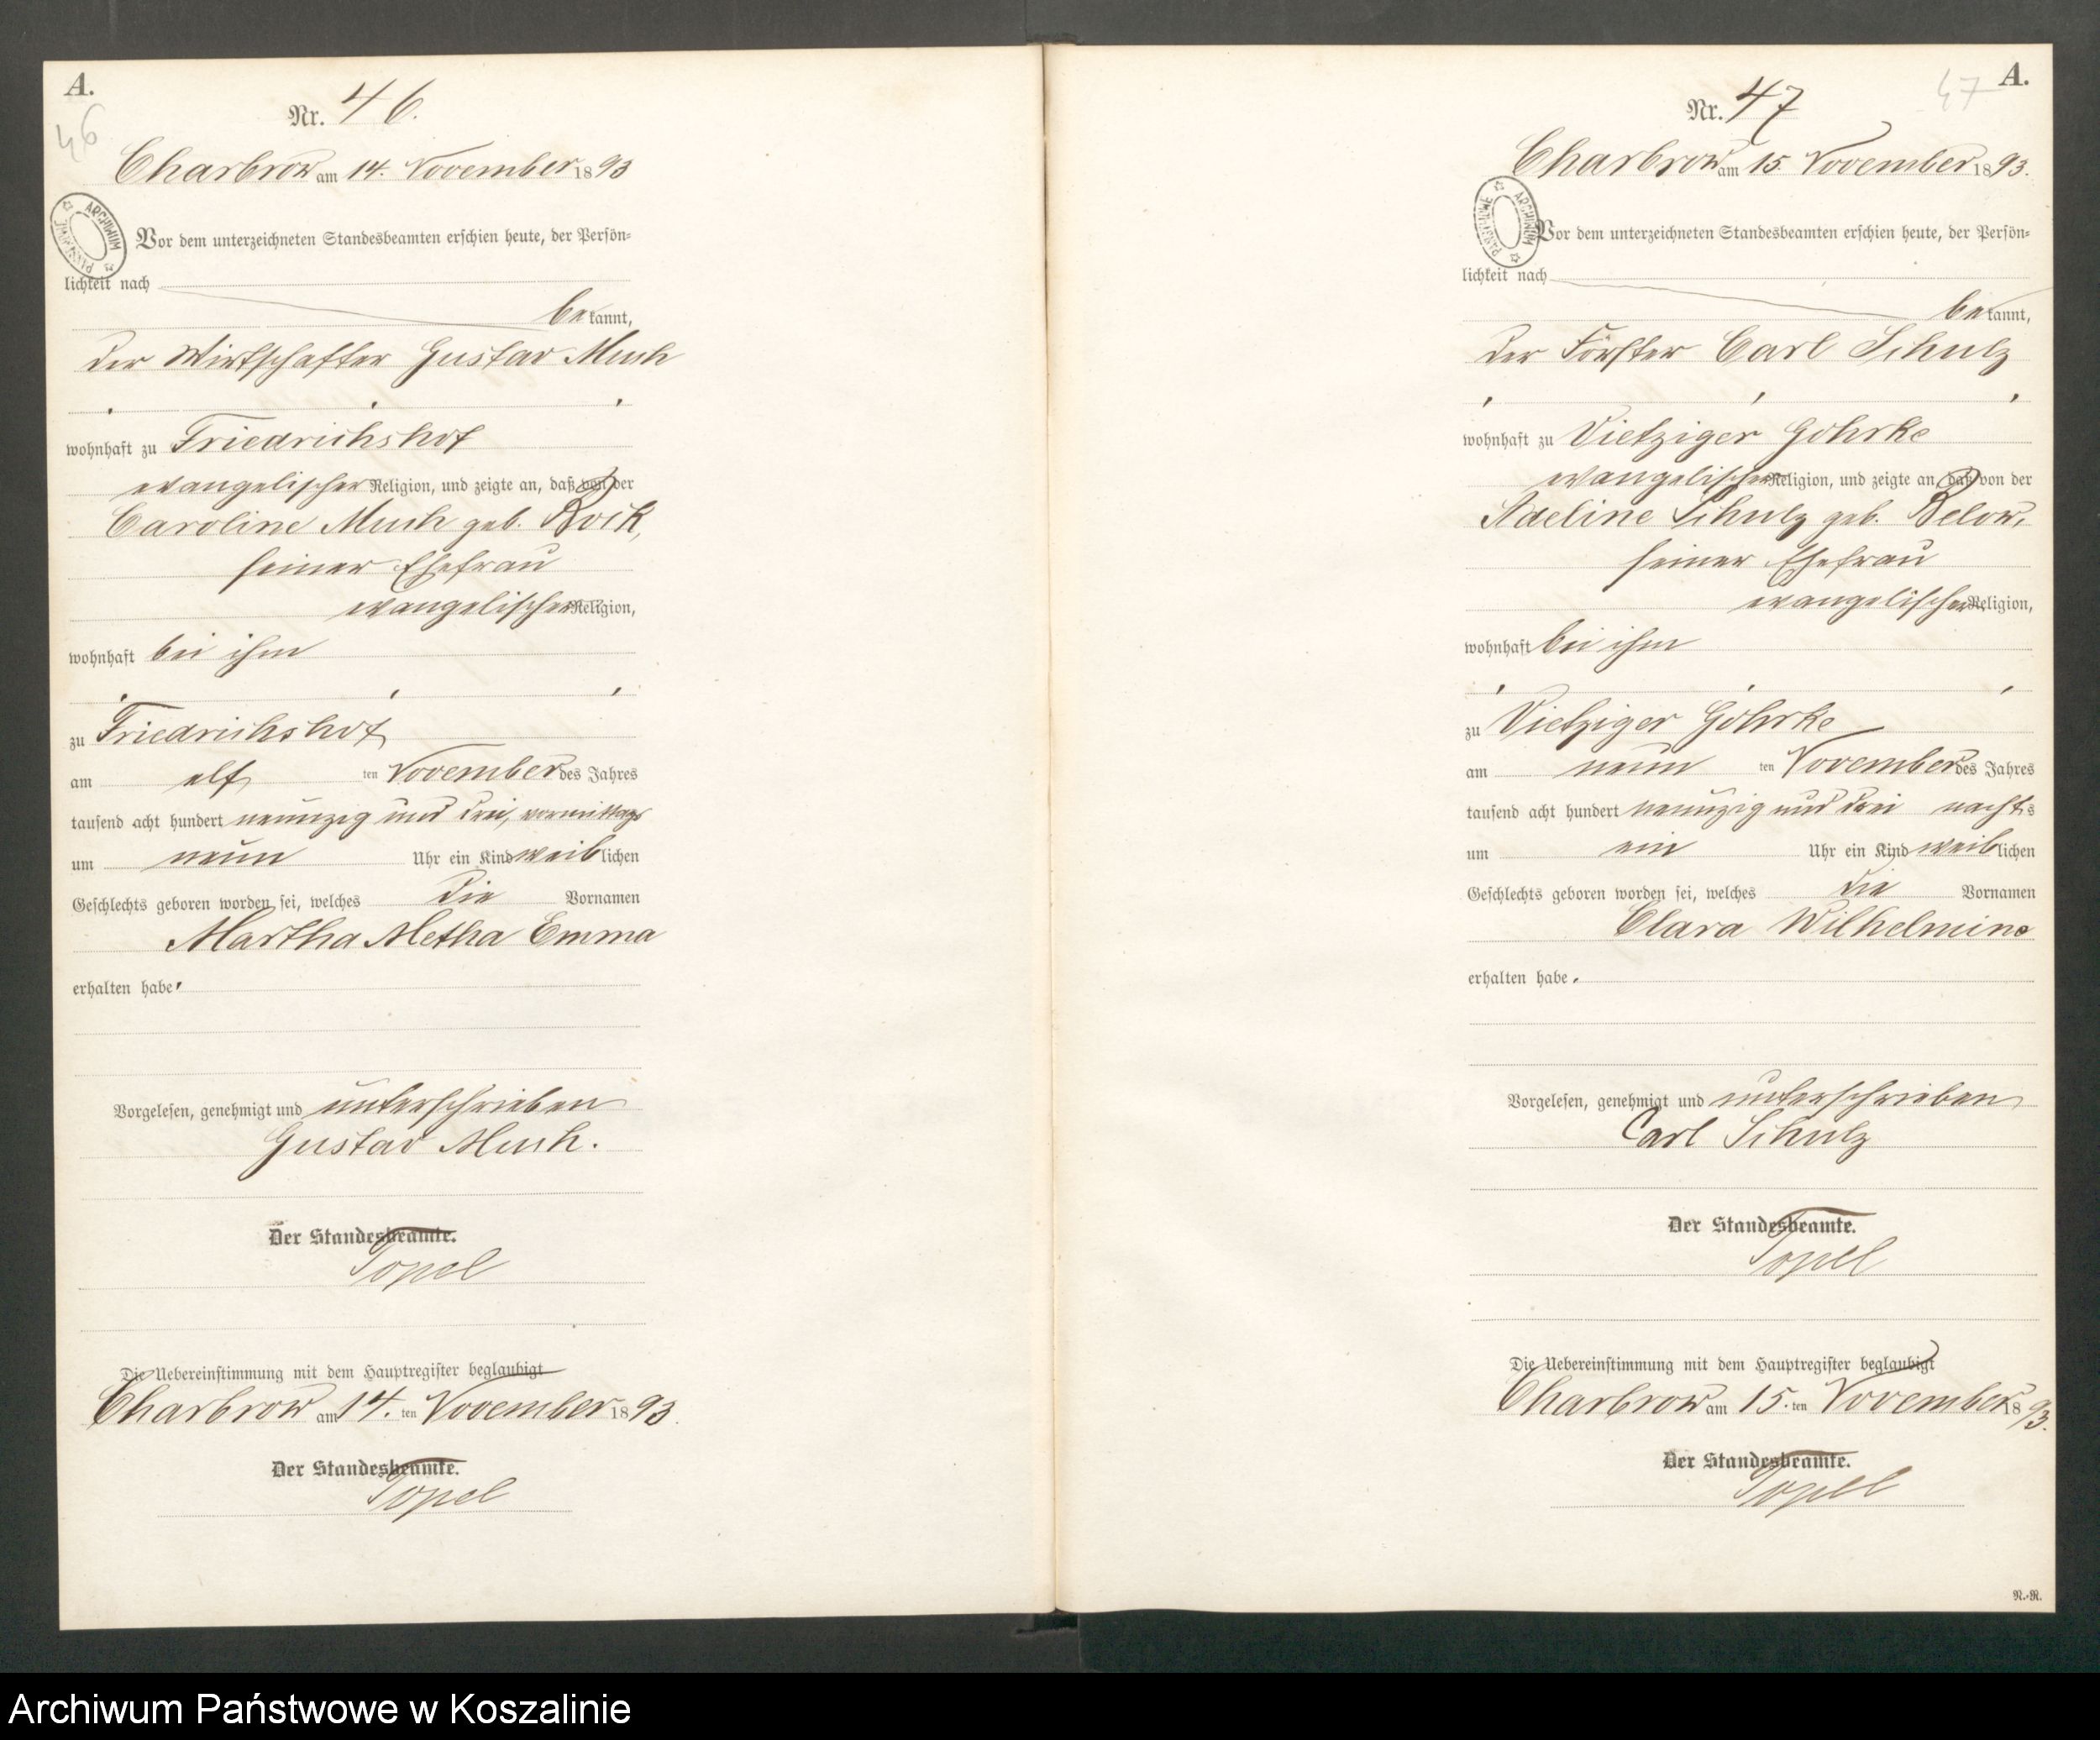 A.
46
Nr. 46.
Charbrow am 14. November 1893
ARCHIWUM PAŃSTWOWE
Vor dem unterzeichneten Standesbeamten erschien heute, der Persön-
lichkeit nach
bekannt,
der Wirtschafter Gustav Much
wohnhaft zu Friedrichshof
evangelischer Religion, und zeigte an, daß von der
Caroline Much geb. Rock,
seiner Ehefrau
evangelischer Religion,
wohnhaft bei ihm
zu Friedrichshof
am elf ten November des Jahres
tausend acht hundert neunzig und drei, vormittags
um neun Uhr ein Kind weiblichen
Geschlechts geboren worden sei, welches die Vornamen
Martha Metha Emma
erhalten habe.
Vorgelesen, genehmigt und unterschrieben
Gustav Much.
Der Standesbeamte.
Topel
Die Uebereinstimmung mit dem Hauptregister beglaubigt
Charbrow am 14. ten November 1893.
Der Standesbeamte.
Topel
47
A.
Nr. 47
Charbrow am 15. November 1893.
ARCHIWUM PAŃSTWOWE
Vor dem unterzeichneten Standesbeamten erschien heute, der Persön-
lichkeit nach
bekannt,
der Förster Carl Schulz
wohnhaft zu Vietziger Gohrke
evangelischer Religion, und zeigte an, daß von der
Adeline Schulz geb. Below,
seiner Ehefrau
evangelischer Religion,
wohnhaft bei ihm
zu Vietziger Gohrke
am neun ten November des Jahres
tausend acht hundert neunzig und drei nachts
um ein Uhr ein Kind weiblichen
Geschlechts geboren worden sei, welches die Vornamen
Clara Wilhelmine
erhalten habe.
Vorgelesen, genehmigt und unterschrieben
Carl Schulz
Der Standesbeamte.
Topel
Die Uebereinstimmung mit dem Hauptregister beglaubigt
Charbrow am 15. ten November 1893.
Der Standesbeamte.
Topel
N.-R.
Archiwum Państwowe w Koszalinie